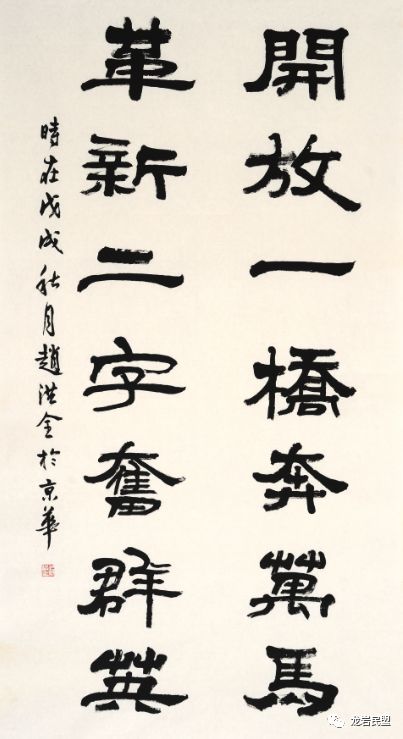 開放一橋奔萬馬
革新二字奮群英
時在戊戌秋月趙洪全於京華
龙岩民盟